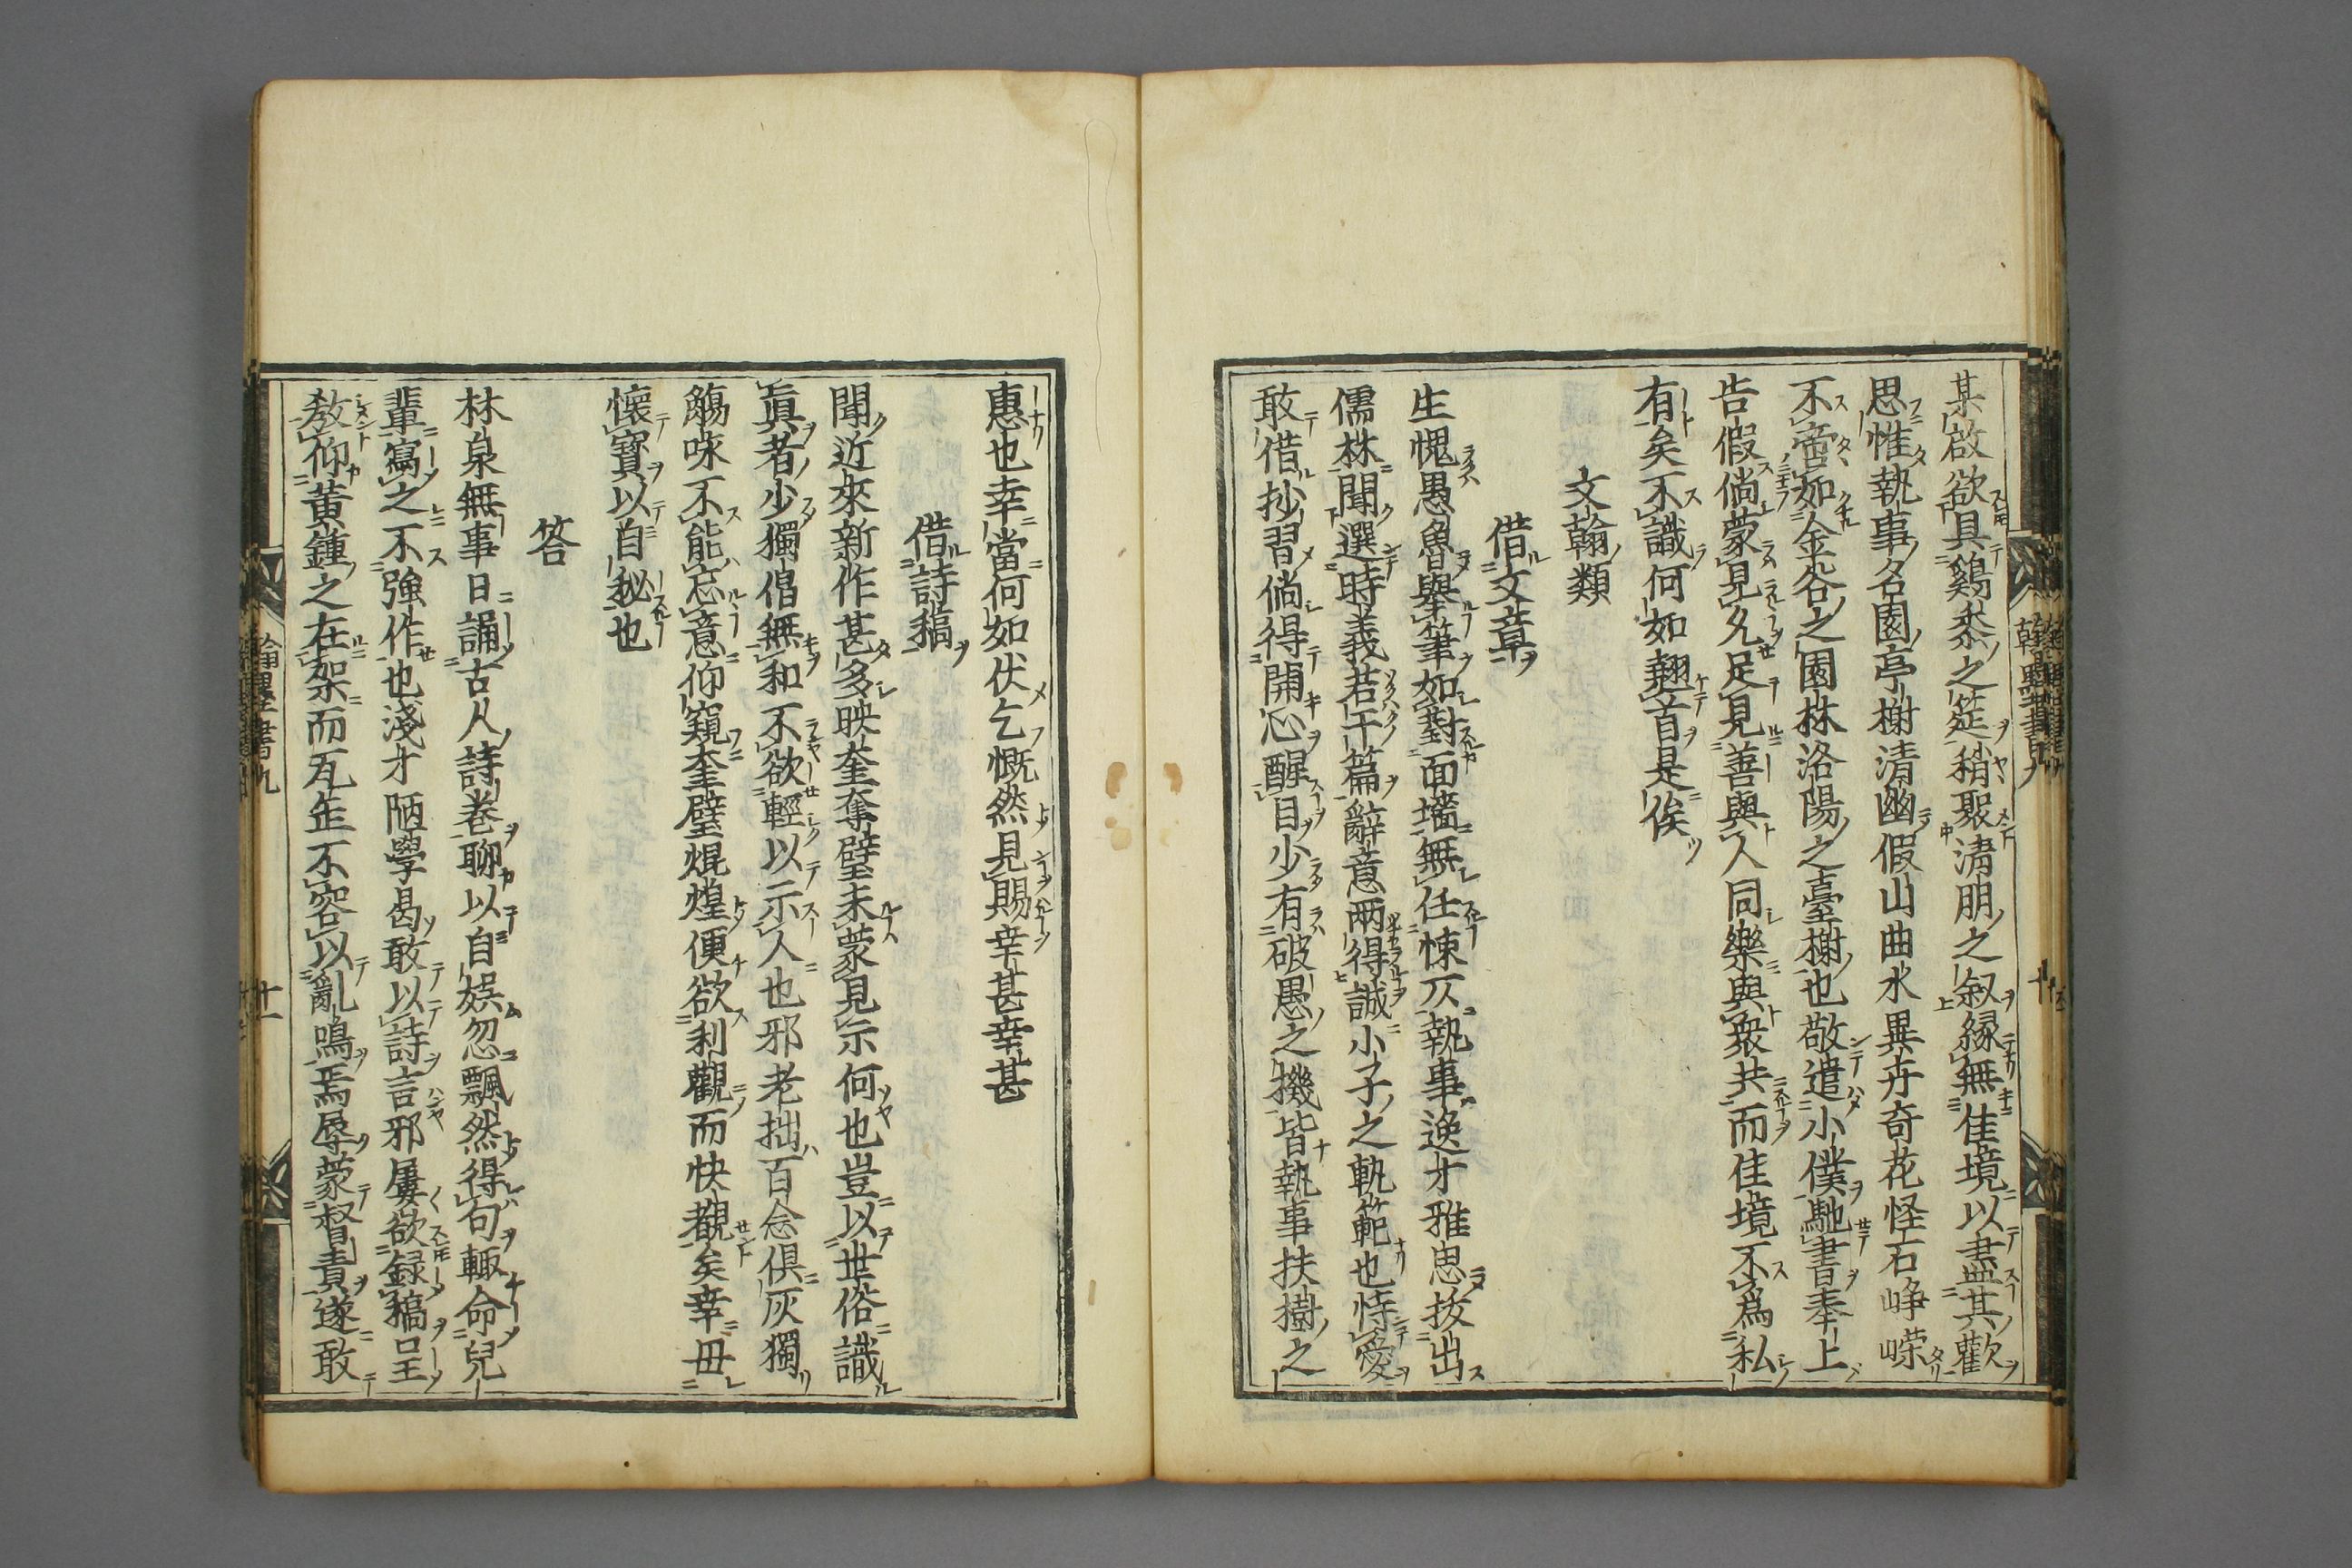 某啟欲具鷄黍之筵稍聚淸朋之叙緣無佳境以盡其歡
思惟執事名園亭榭清幽假山曲水異卉奇花怪石崢嶸
不啻如金谷之園林洛陽之臺榭也敬遣小僕馳書奉上
告假倘蒙見允足見善與人同樂與衆共而佳境不爲私
有矣不識何如翹首是俟
文翰類
借文章
生愧愚魯舉筆如對面墻無任悚仄執事逸才雅思拔出
儒林聞選時義若干篇辭意兩得誠小子之軌範也恃愛
敢借抄習倘得開心醒目少有破愚之機皆執事扶樹之
惠也幸當何如伏乞慨然見賜幸甚幸甚
借詩稿
聞近來新作甚多映奎奪璧未蒙見示何也豈以世俗識
眞者少獨倡無和不欲輕以示人也邪老拙百念俱灰獨
觴咏不能忘意仰窺奎璧焜煌便欲利觀而快覩矣幸毋
懷寳以自秘也
答
林泉無事日誦古人詩卷聊以自娯忽飄然得句輙命兒
輩寫之不強作也淺才陋學曷敢以詩言邪屢欲録稿呈
教仰黄鍾之在架而瓦缶不容以亂鳴焉辱蒙督責遂敢